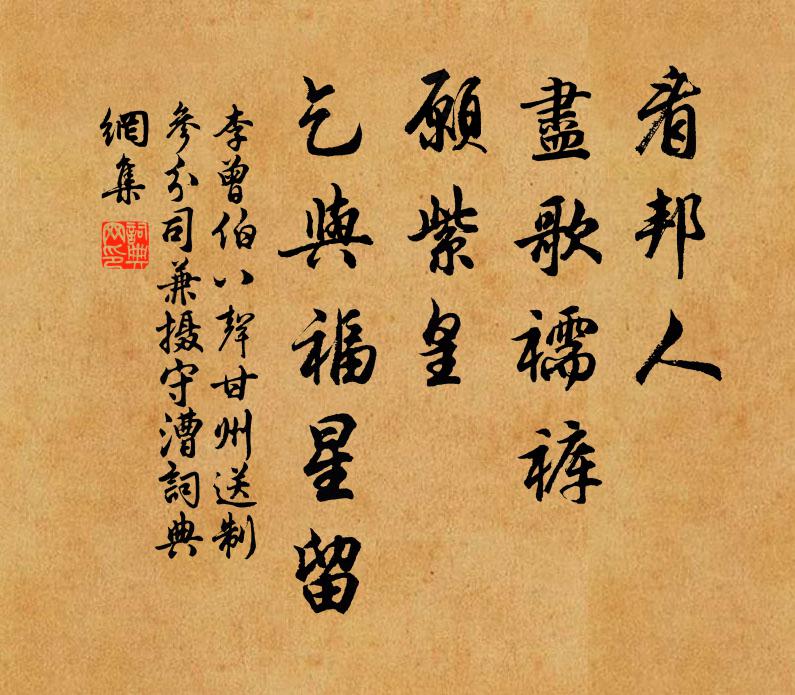 看邦人
盡歌襦裤
願紫皇
乞與福星留
李曾伯八聲甘州送制
參分司兼摄守漕詞典
網集
詞典網印